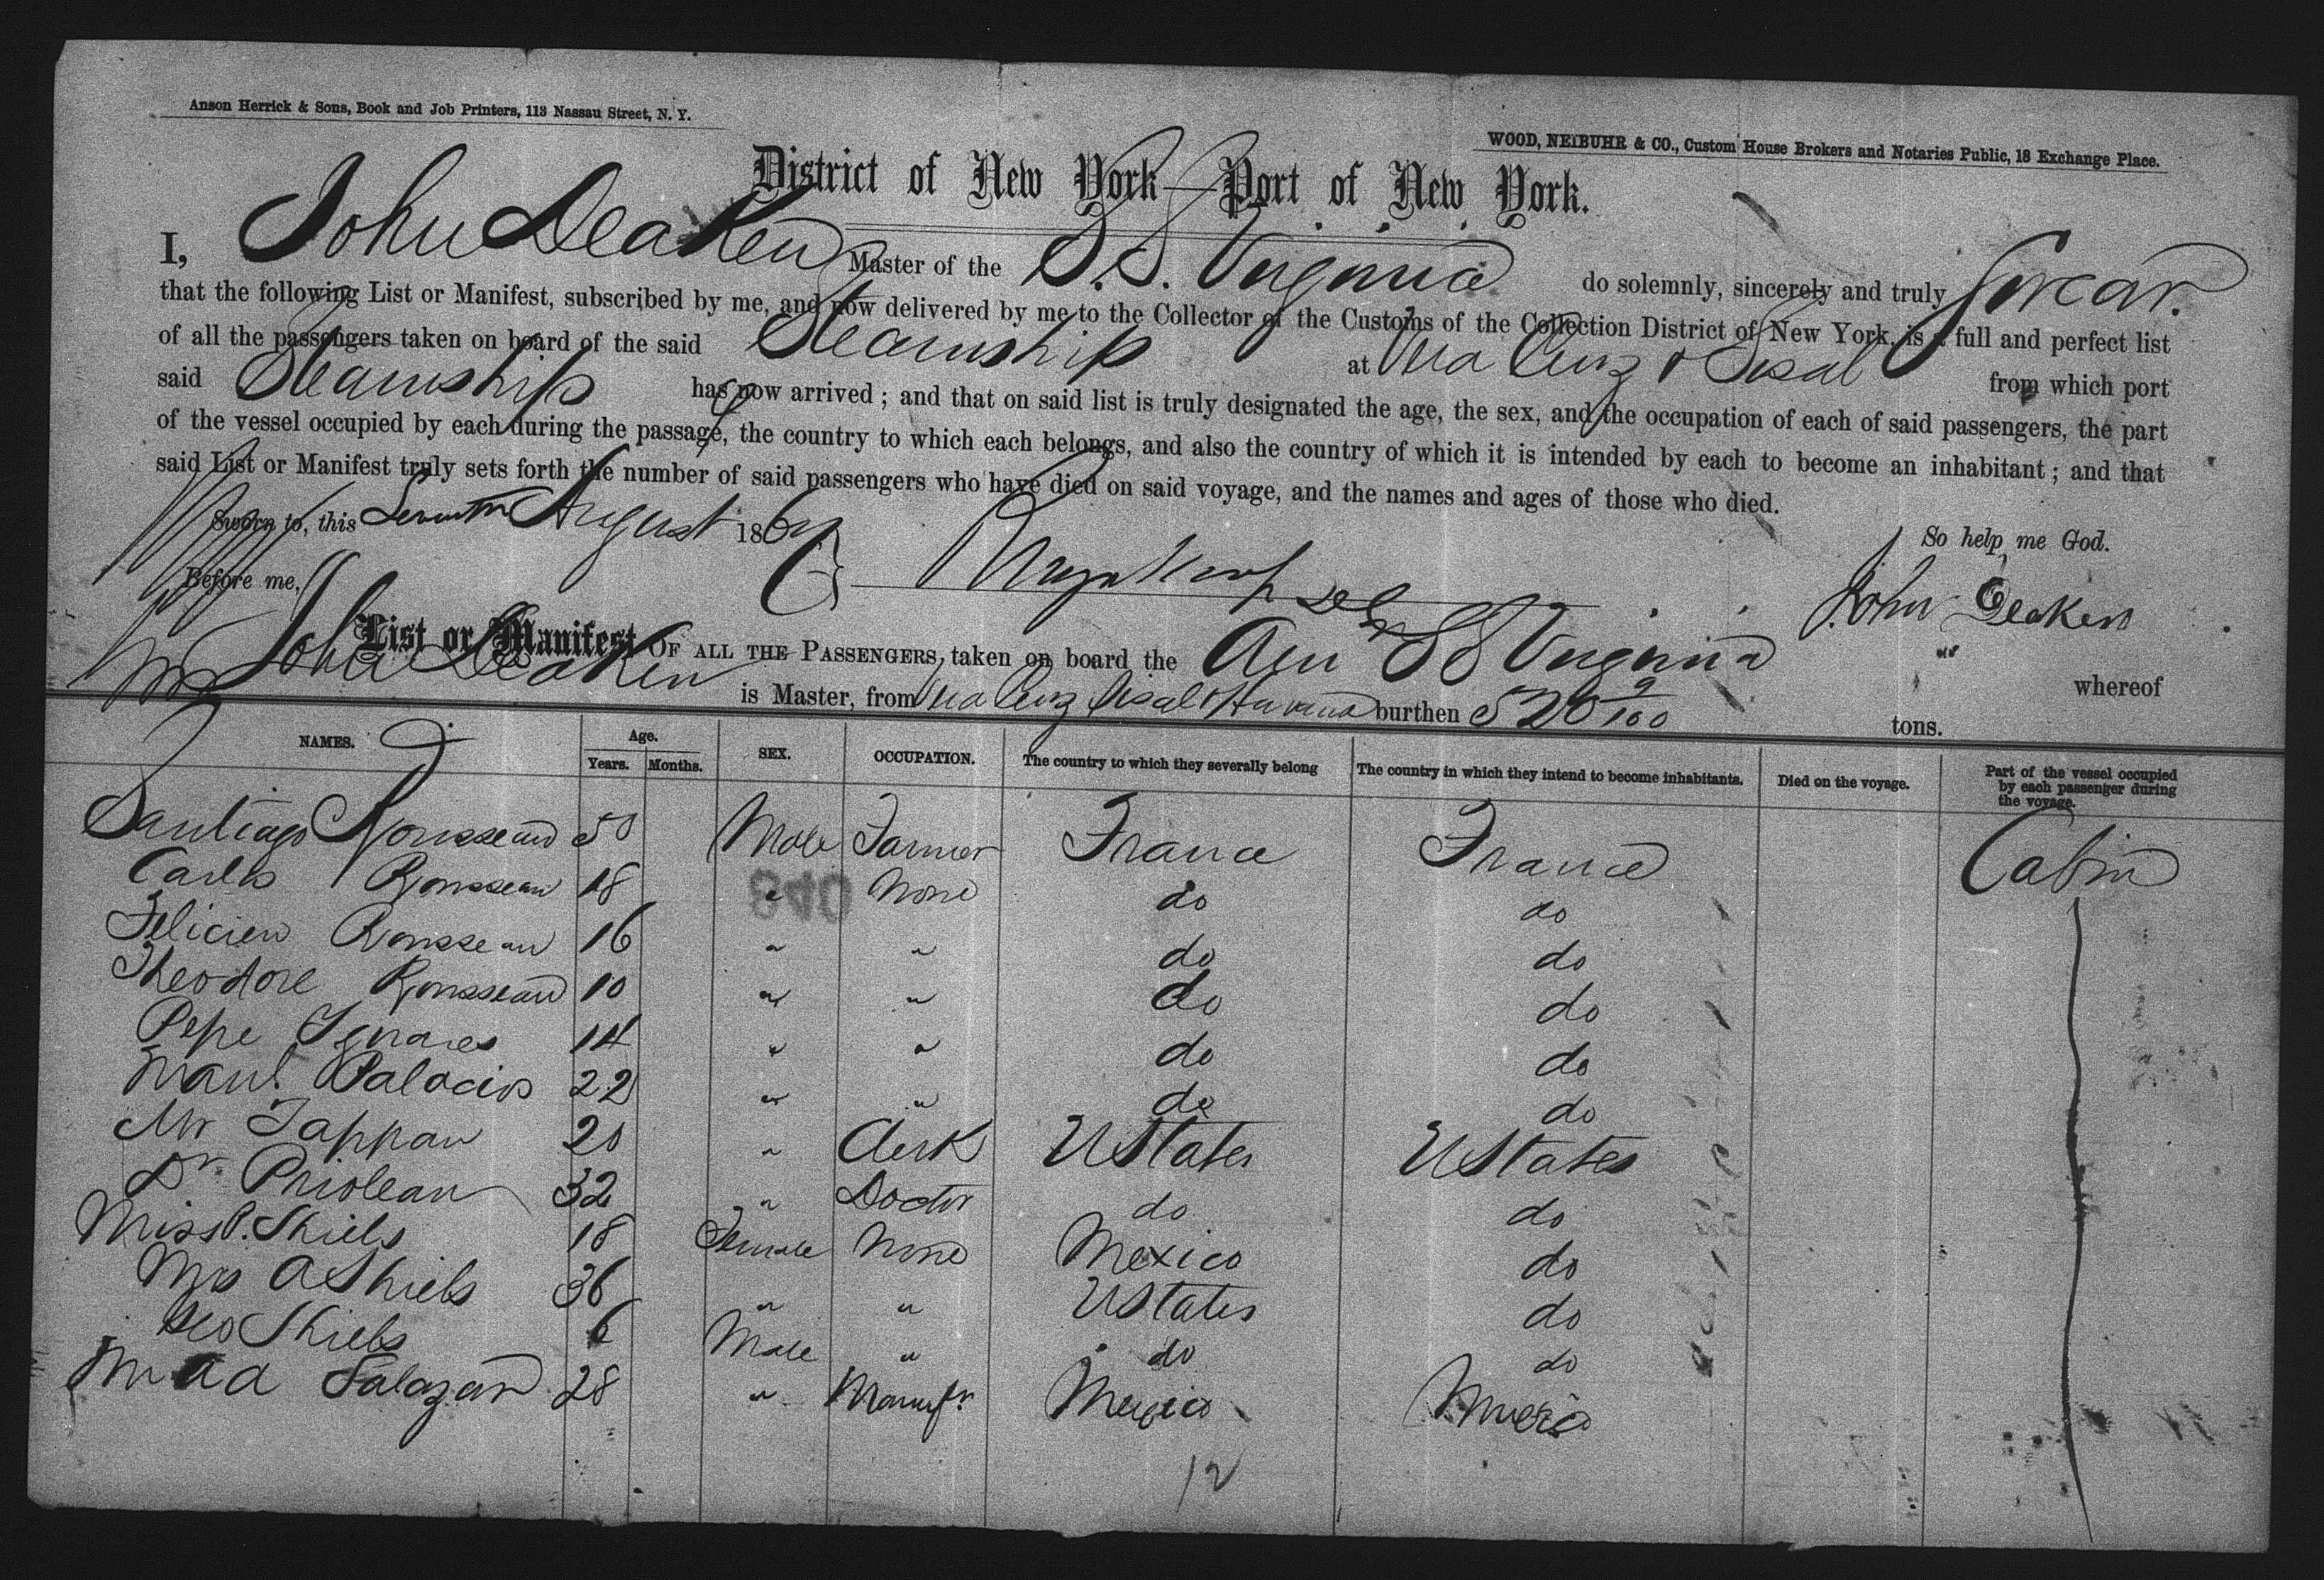 Anson Herrick & Sons, Book and Job Printers, 113 Nassau Street, N. Y.
WOOD, NEIBUHR & CO., Custom House Brokers and Notaries Public, 18 Exchange Place.
District of New York—Port of New York.
I, John Deaken Master of the S.S. Virginia do solemnly, sincerely and truly Swear
that the following List or Manifest, subscribed by me, and now delivered by me to the Collector of the Customs of the Collection District of New York, is a full and perfect list
of all the passengers taken on board of the said Steamship at Vra Cruz & Sisal from which port
said Steamship has now arrived; and that on said list is truly designated the age, the sex, and the occupation of each of said passengers, the part
of the vessel occupied by each during the passage, the country to which each belongs, and also the country of which it is intended by each to become an inhabitant; and that
said List or Manifest truly sets forth the number of said passengers who have died on said voyage, and the names and ages of those who died.
Sworn to, this Seventh August 186
So help me God.
Before me,
John Deaken
List or Manifest OF ALL THE PASSENGERS, taken on board the Am SS Virginia whereof
John Deaken is Master, from Vra Cruz Sisal & Havana burthen 520 9/100 tons.
NAMES. Age. Years. Months. SEX. OCCUPATION. The country to which they severally belong The country in which they intend to become inhabitants. Died on the voyage. Part of the vessel occupied by each passenger during the voyage.
Santiago Rousseau 50 Male Farmer France France Cabin
Carlos Rousseau 18 " None do do
Felicien Rousseau 16 " " do do
Theodore Rousseau 10 " " do do
Pepe 14 " " do do
Manl. Palacios 22 " " do do
Mr Tappan 20 " Clerk UStates UStates
Dr. Prioleau 32 " Doctor do do
Miss P. Shiels 18 Female None Mexico do
Mrs A Shiels 36 " " UStates do
Geo Shiels 6 Male " do do
Salazar 28 " Manufr. Mexico Mexico
12